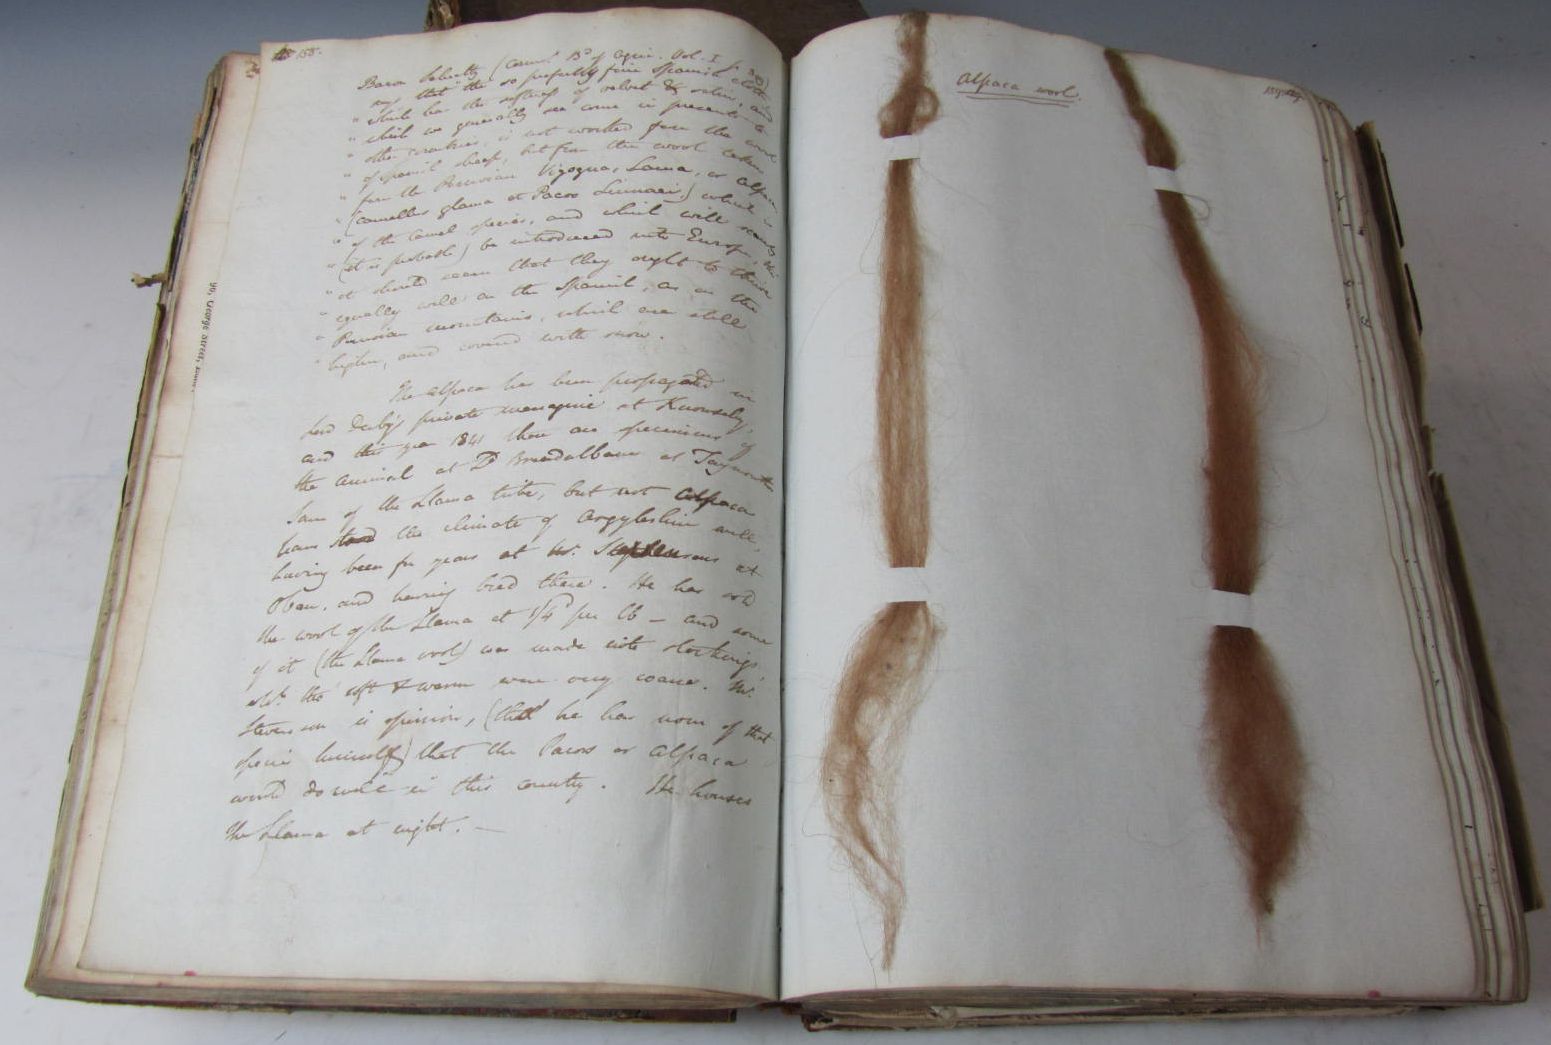 155.
Baron Schultz (Com. Bd of Agric. Vol. I p.
says that "the so perfectly fine Spanish cloth,
" which has the softness of velvet & satin, and
" which we generally see come in presents to
" other countries, is not worked from the wool
" of Spanish sheep, but from the wool taken
" from the Peruvian Vigogna, Lama, or Alpaca,
" (camellus glama et Pacos Linnaei) which is
" of the camel species, and which will scarcely
" (it is probable) be introduced into Europe, tho'
" it should seem that they ought to thrive
" equally well on the Spanish, as on the
" Peruvian mountains, which are still
" higher, and covered with snow.
The alpaca has been propagated in
Lord Derby's private menagerie at Knowsely,
and this year 1841 there are specimens of
the animal at Ld Breadalbane at Taymouth
Some of the Llama tribe, but not Alpaca
have stood the climate of Argyleshire well,
having been for years at Mr. Stephensons at
Oban, and having bred there. He has sold
the wool of the Llama at 1/4d per lb — and some
of it (the Llama wool) was made into stockings
wh. tho' soft & warm were very coarse. Mr.
Stevenson is opinion, (tho' he has none of that
specie himself) that the Pacos or Alpaca
would do well in this country. He houses
the Llama at night. —
90, George Street,
Alpaca wool.